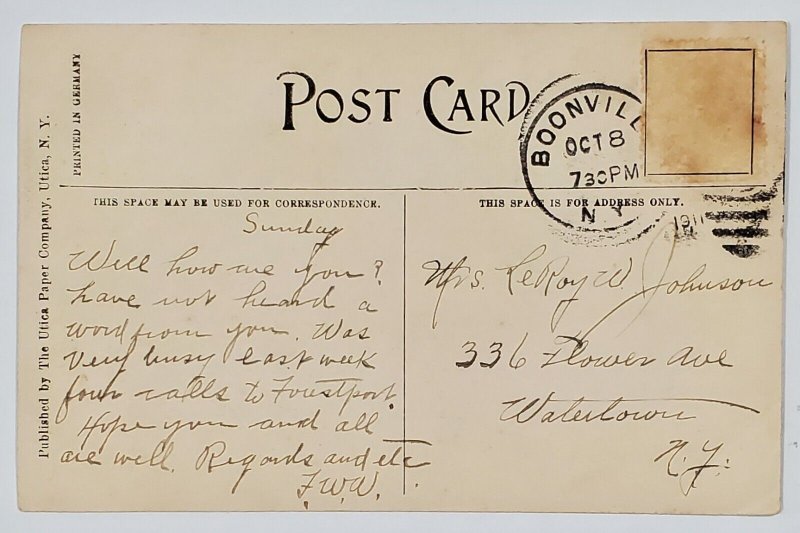 POST CARD
PRINTED IN GERMANY
Published by The Utica Paper Company, Utica, N. Y.
BOONVILL
OCT 8
730 PM
N.Y.
1911
THIS SPACE MAY BE USED FOR CORRESPONDENCE.
THIS SPACE IS FOR ADDRESS ONLY.
Sunday
Well how are you?
have not heard a
word from you. Was
very busy last week
four calls to Forestport.
Hope you and all
are well. Regards and etc
F.W.W.
Mrs. LeRoy W. Johnson
336 Flower Ave
Watertown
N.Y.